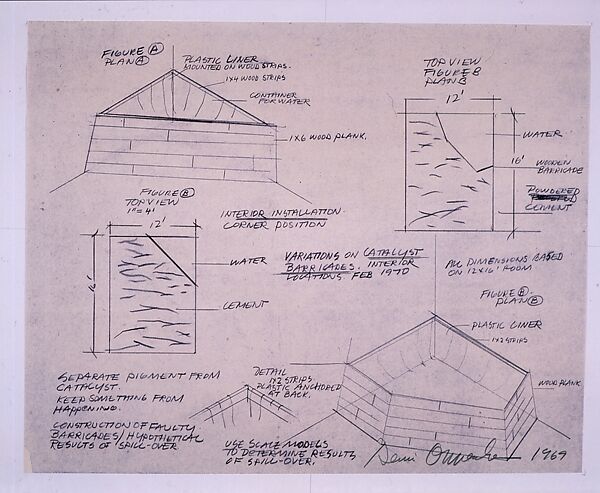 FIGURE A
PLAN A
PLASTIC LINER
MOUNTED ON WOOD STRIPS.
1X4 WOOD STRIPS
CONTAINER
FOR WATER
1X6 WOOD PLANK.
TOP VIEW
FIGURE B
PLAN B
12'
WATER
16'
WOODEN
BARRICADE
POWDERED
CEMENT
FIGURE B
TOP VIEW
1" = 4'
12'
16'
WATER
CEMENT
INTERIOR INSTALLATION.
CORNER POSITION
VARIATIONS ON CATALYST
BARRICADES. INTERIOR
LOCATIONS. FEB 1970
ALL DIMENSIONS BASED
ON 12X16' ROOM
FIGURE B.
PLAN B
PLASTIC LINER
1X2 STRIPS
WOOD PLANK
SEPARATE PIGMENT FROM
CATALYST.
KEEP SOMETHING FROM
HAPPENING.
CONSTRUCTION OF FAULTY
BARRICADES/HYPOTHETICAL
RESULTS OF SPILL-OVER
DETAIL
1X2 STRIPS
PLASTIC ANCHORED
AT BACK.
USE SCALE MODELS
TO DETERMINE RESULTS
OF SPILL-OVER.
1969